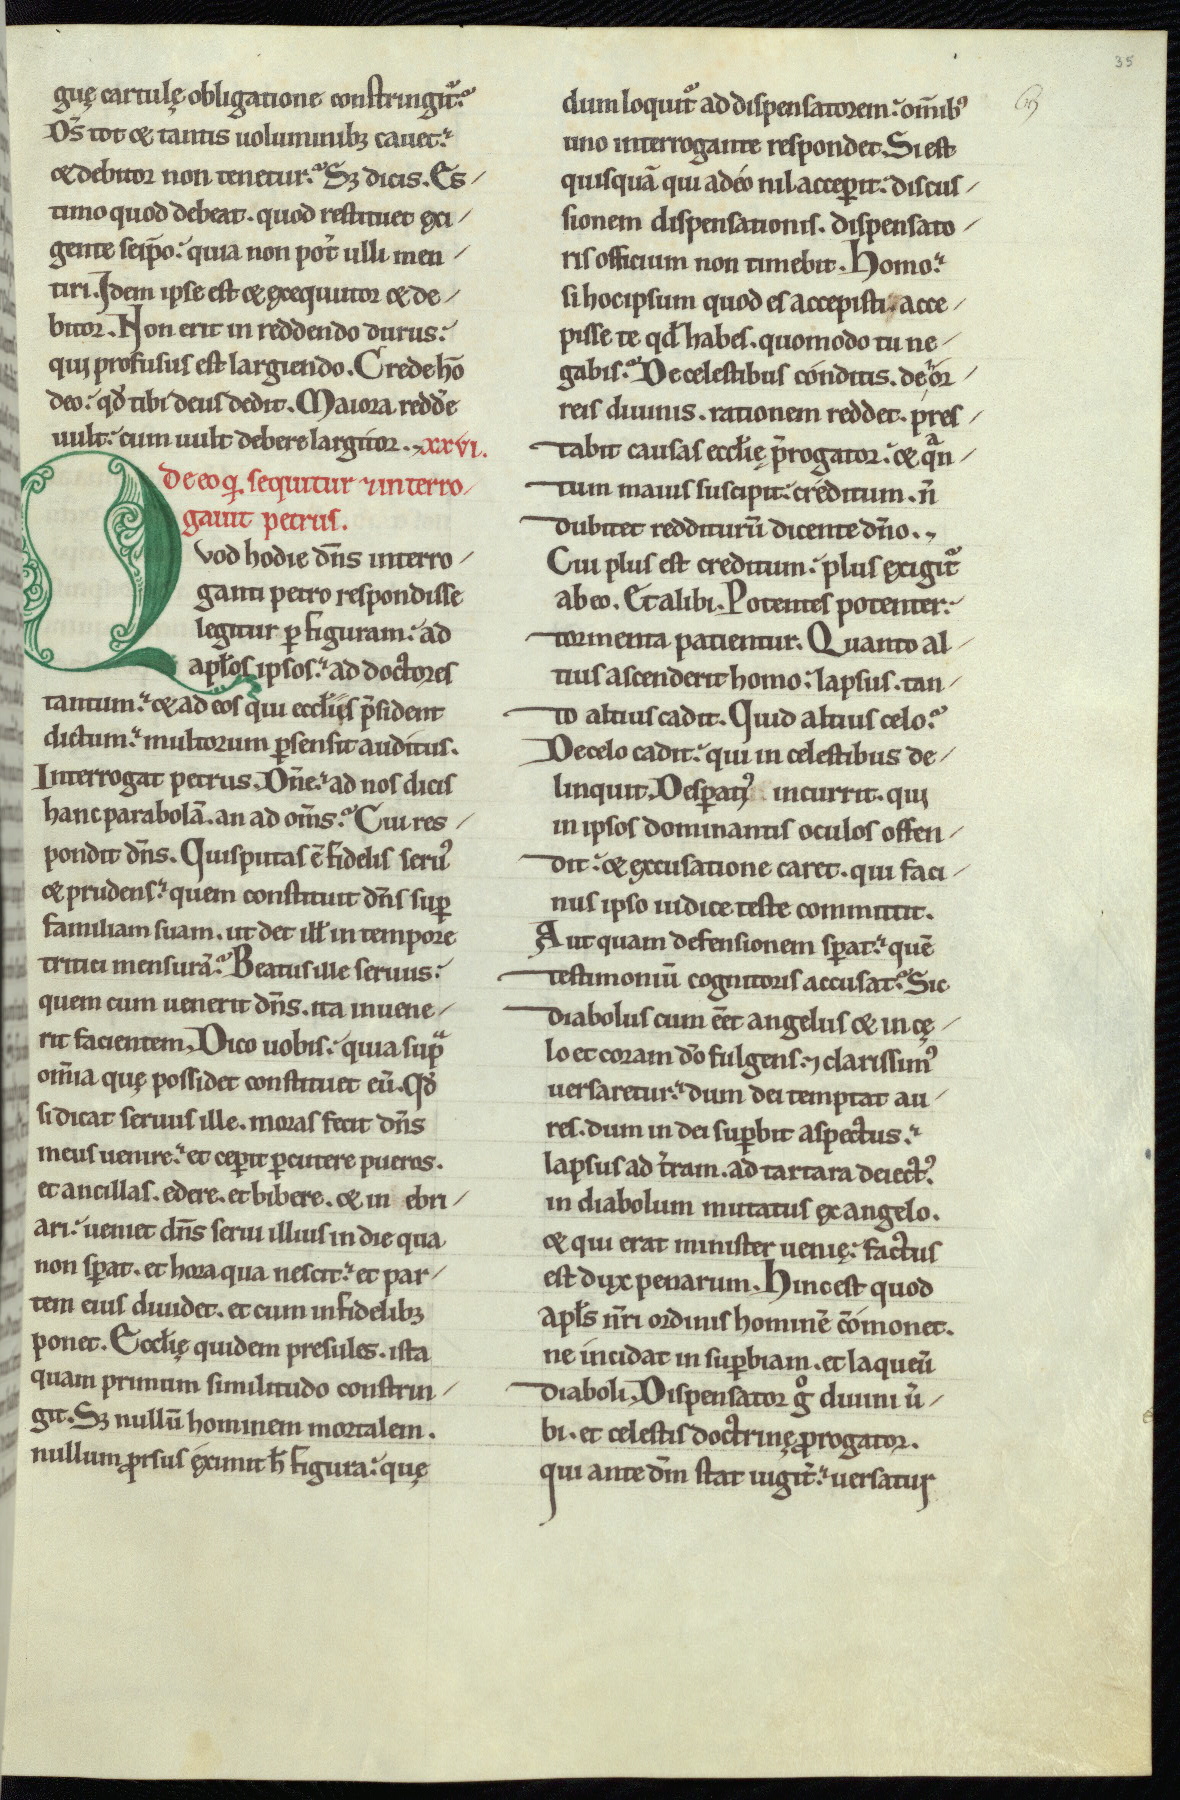 35
guę cartulę obligatione constringit᷑.
D̄s tot & tantis uoluminibꝫ cauet.
& debitor non tenetur. Sꝫ dicis. Es-
timo quod debeat. quod restituet exi-
gente seip̄o: quia non pot̄ ulli men-
tiri. Idem ipse est & exequutor & de-
bitor. Non erit in reddendo durus:
qui profusus est largiendo. Crede hō
deo: qd̄ tibi deus dedit. Maiora redd̄e
uult: cum uult debere largitor. xxvi.
De eo qd̄ sequitur interro-
gauit petrus.
Quod hodie dn̄s interro-
ganti petro respondisse
legitur ꝑ figuram: ad
apl̄os ipsos: ad doctores
tantum: & ad eos qui ecclīis p̄sident
dictum: multorum ꝑsensit auditus.
Interrogat petrus. Dn̄e: ad nos dicis
hanc parabolā. an ad om̄s. Cui res-
pondit dn̄s. Quis putas ē fidelis seruꝰ
& prudens: quem constituit dn̄s suꝑ
familiam suam. ut det ill̄ in tempore
tritici mensurā. Beatus ille seruus:
quem cum uenerit dn̄s. ita inuene-
rit facientem. Dico uobis: quia supᵃ
om̄ia quę possidet constituet eū. Qd̄
si dicat seruus ille. moras fecit dn̄s
meus uenire: et ceꝑit ꝑcutere pueros.
et ancillas. edere. et bibere. & in ebri-
ari: ueniet dn̄s serui illius in die qua
non sꝑat. et hora qua nescit: et par-
tem eius diuidet. et cum infidelibꝫ
ponet. Ecclīę quidem presules. ista
quam primum similitudo constrin-
git. Sꝫ nullū hominem mortalem.
nullum ꝓrsus eximit h̄ figura: quę
dum loquit᷑ ad dispensatorem: om̄ibꝰ
uno interrogante respondet. Si est
quisquā qui a deo nil acceꝑit: discus-
sionem dispensationis. dispensato-
ris officium non timebit. Homo:
si hoc ipsum quod es accepisti. acce-
pisse te qd̄ habes. quomodo tu ne-
gabis. De celestibus conditis. de or-
reis diuinis. rationem reddet. pres-
tabit causas ecclīę p̄rogator: & qᵃn-
tum maius suscipit: creditum. n̄
dubitet rediturū dicente dn̄o.
Cui plus est creditum: plus exigit᷑
ab eo. Et alibi. Potentes potenter:
tormenta patientur. Quanto al-
tius ascenderit homo: lapsus. tan-
to altius cadit. Quid altius celo.
De celo cadit: qui in celestibus de-
linquit. Desꝑatꝰ incurrit. qui
in ipsos dominantis oculos offen-
dit: & excusatione caret. qui faci-
nus ipso iudice teste committit.
Aut quam defensionem sꝑat: quē
testimoniū cognitoris accusat. Sic
diabolus cum eēt angelus & in cę-
lo et coram dō fulgens: ⁊ clarissimꝰ
uersaretur: dum dei temptat au-
res. dum in dei suꝑbit aspectus:
lapsus ad t̄ram. ad tartara deiectꝰ.
in diabolum mutatus ex angelo.
& qui erat minister uenię: factus
est dux penarum. Hinc est quod
apl̄s nr̄i ordinis hominē cōmonet.
ne incidat in suꝑbiam. et laqueū
diaboli. Dispensator gͦ diuini ū-
bi. et celestis doctrinę ꝓrogator.
qui ante dm̄ stat iugit̄: uersatur